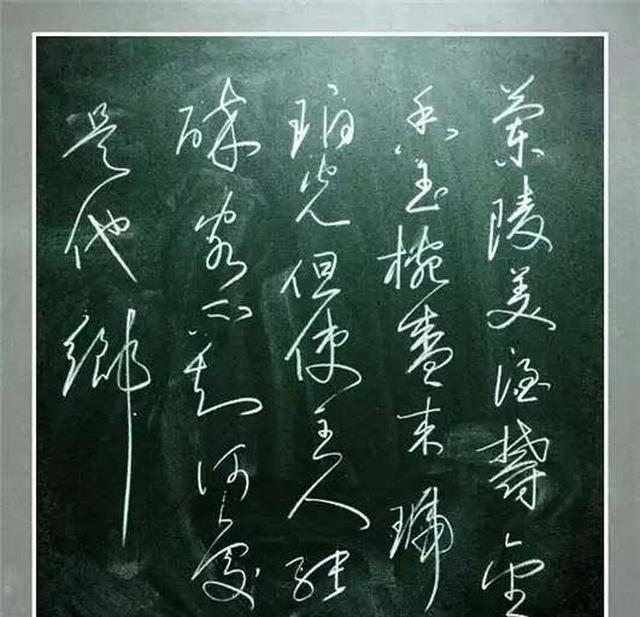 蘭陵美酒鬱金
香玉椀盛来琥
珀光但使主人能
醉客不知何處
是他鄉